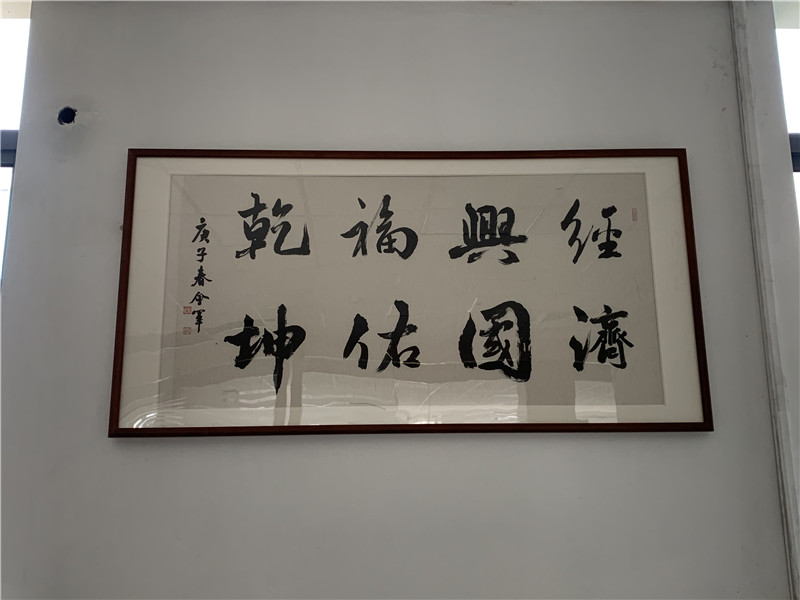 經濟
興國
福佑
乾坤
庚子春会軍